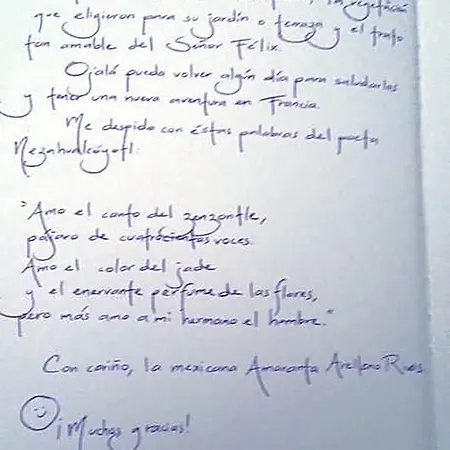 la vegetación
que eligieron para su jardín o terraza y el trato
tan amable del Señor Félix.
Ojalá pueda volver algún día para saludarlas
y tener una nueva aventura en Francia.
Me despido con éstas palabras del poeta
Nezahualcóyotl:
"Amo el canto del zenzontle,
pájaro de cuatrocientas voces.
Amo el color del jade
y el enervante perfume de las flores,
pero más amo a mi hermano el hombre."
Con cariño, la mexicana Amaranta Arellano Rivas
¡Muchas gracias!